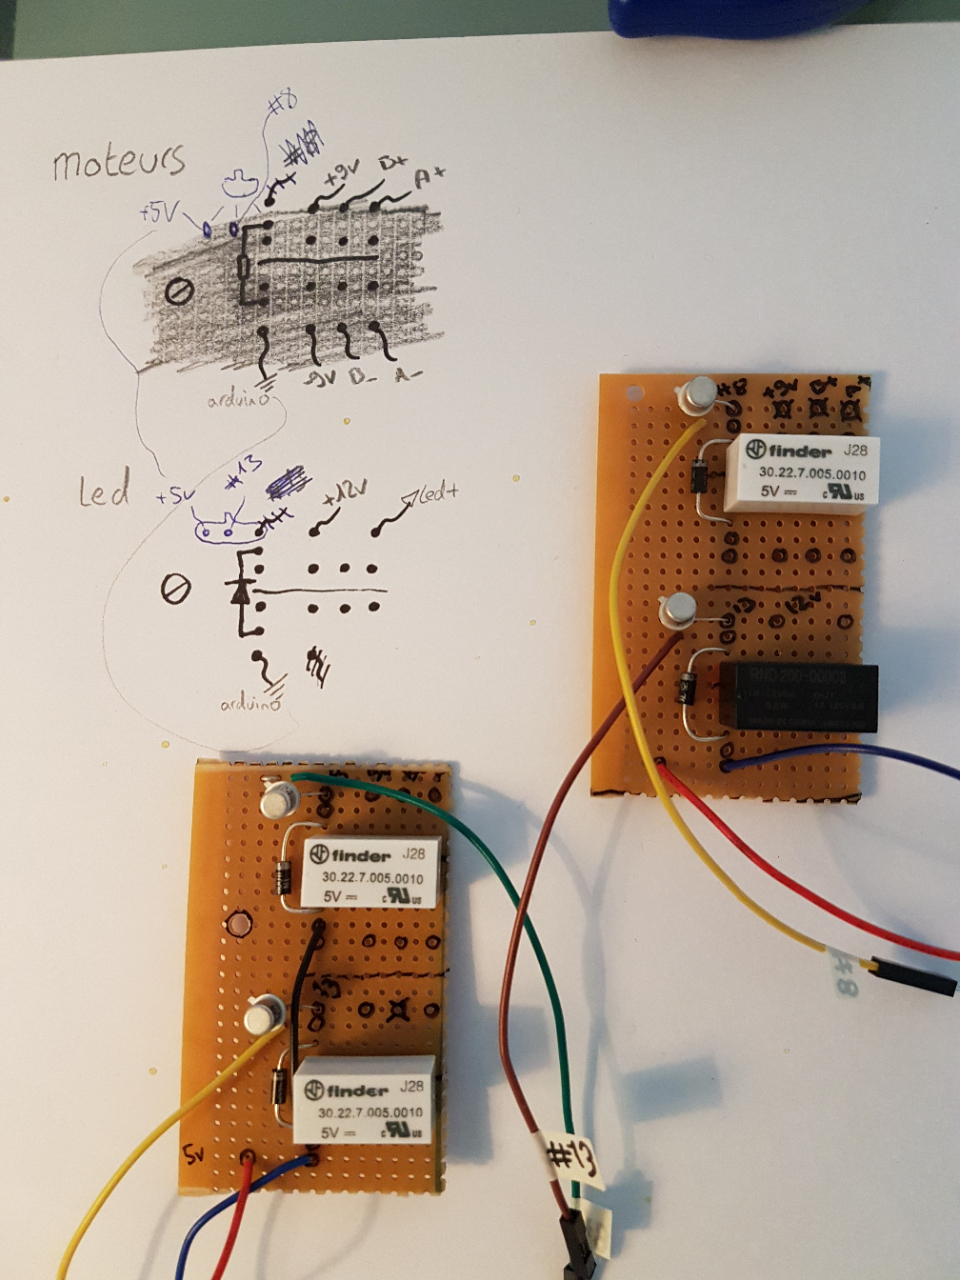 #8
moteurs
+9V
B+
A+
+5V
9V
B-
A-
arduino
Led
#13
+5V
+12V
Led+
arduino
#8
+9V
B+
A+
finder J28
30.22.7.005.0010
5V
13
12V
RND 200-00003
finder J28
30.22.7.005.0010
5V
#8
13
finder J28
30.22.7.005.0010
5V
5V
#13